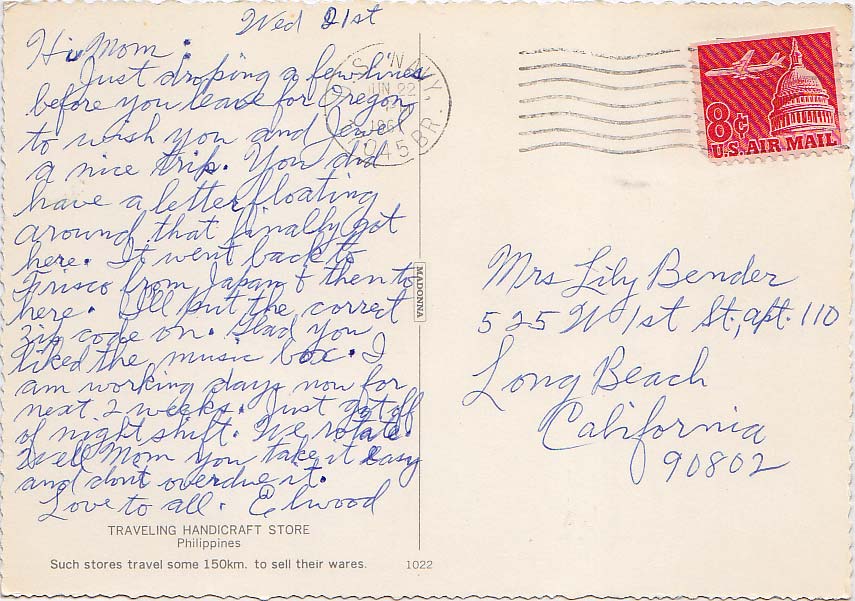 Wed 21st
Hi Mom:
Just droping a few lines
before you leave for Oregon
to wish you and Jewel
a nice trip. You did
have a letter floating
around that finally got
here. It went back to
Frisco from Japan & then to
here. I'll put the correct
zip code on. Glad you
liked the music box. I
am working days now for
next 2 weeks. Just got off
of night shift. We rotate.
Well Mom you take it easy
and dont overdue it.
Love to all. Elwood
TRAVELING HANDICRAFT STORE
Philippines
Such stores travel some 150km. to sell their wares.
1022
MADONNA
NAVY,
JUN 22
045 BR.
8¢
U.S. AIR MAIL
Mrs Lily Bender
525 W 1st St., apt. 110
Long Beach
California
90802